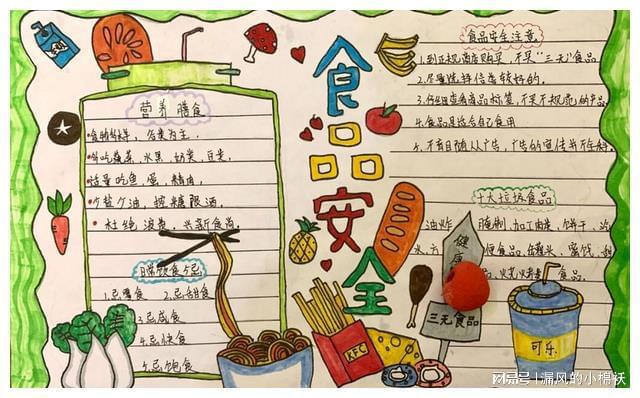 营养膳食
食物多样，谷类为主.
多吃蔬菜、水果、奶类、豆类.
适量吃鱼、蛋、精肉.
少盐少油，控糖限酒.
杜绝浪费，兴新食尚.
晚饮食5忌
1.忌晕食
2.忌甜食
3.忌咸食
4.忌快食
5.忌饱食
食品安全
KFC
食品安全注意
1.到正规商店购买，不买"三无"食品
2.尽量选择信度较好的.
3.仔细查看商品标签，不买不规范的产品
4.食品是适合自己食用
5.不盲目随从广告，广告的宣传并不
十大垃圾食品
油炸
腌制，加工肉类，饼干，汽
便食品，罐头，蜜饯，
烧烤
食品.
健康
三无食品
可乐
搜狐号@漏风的小棉袄